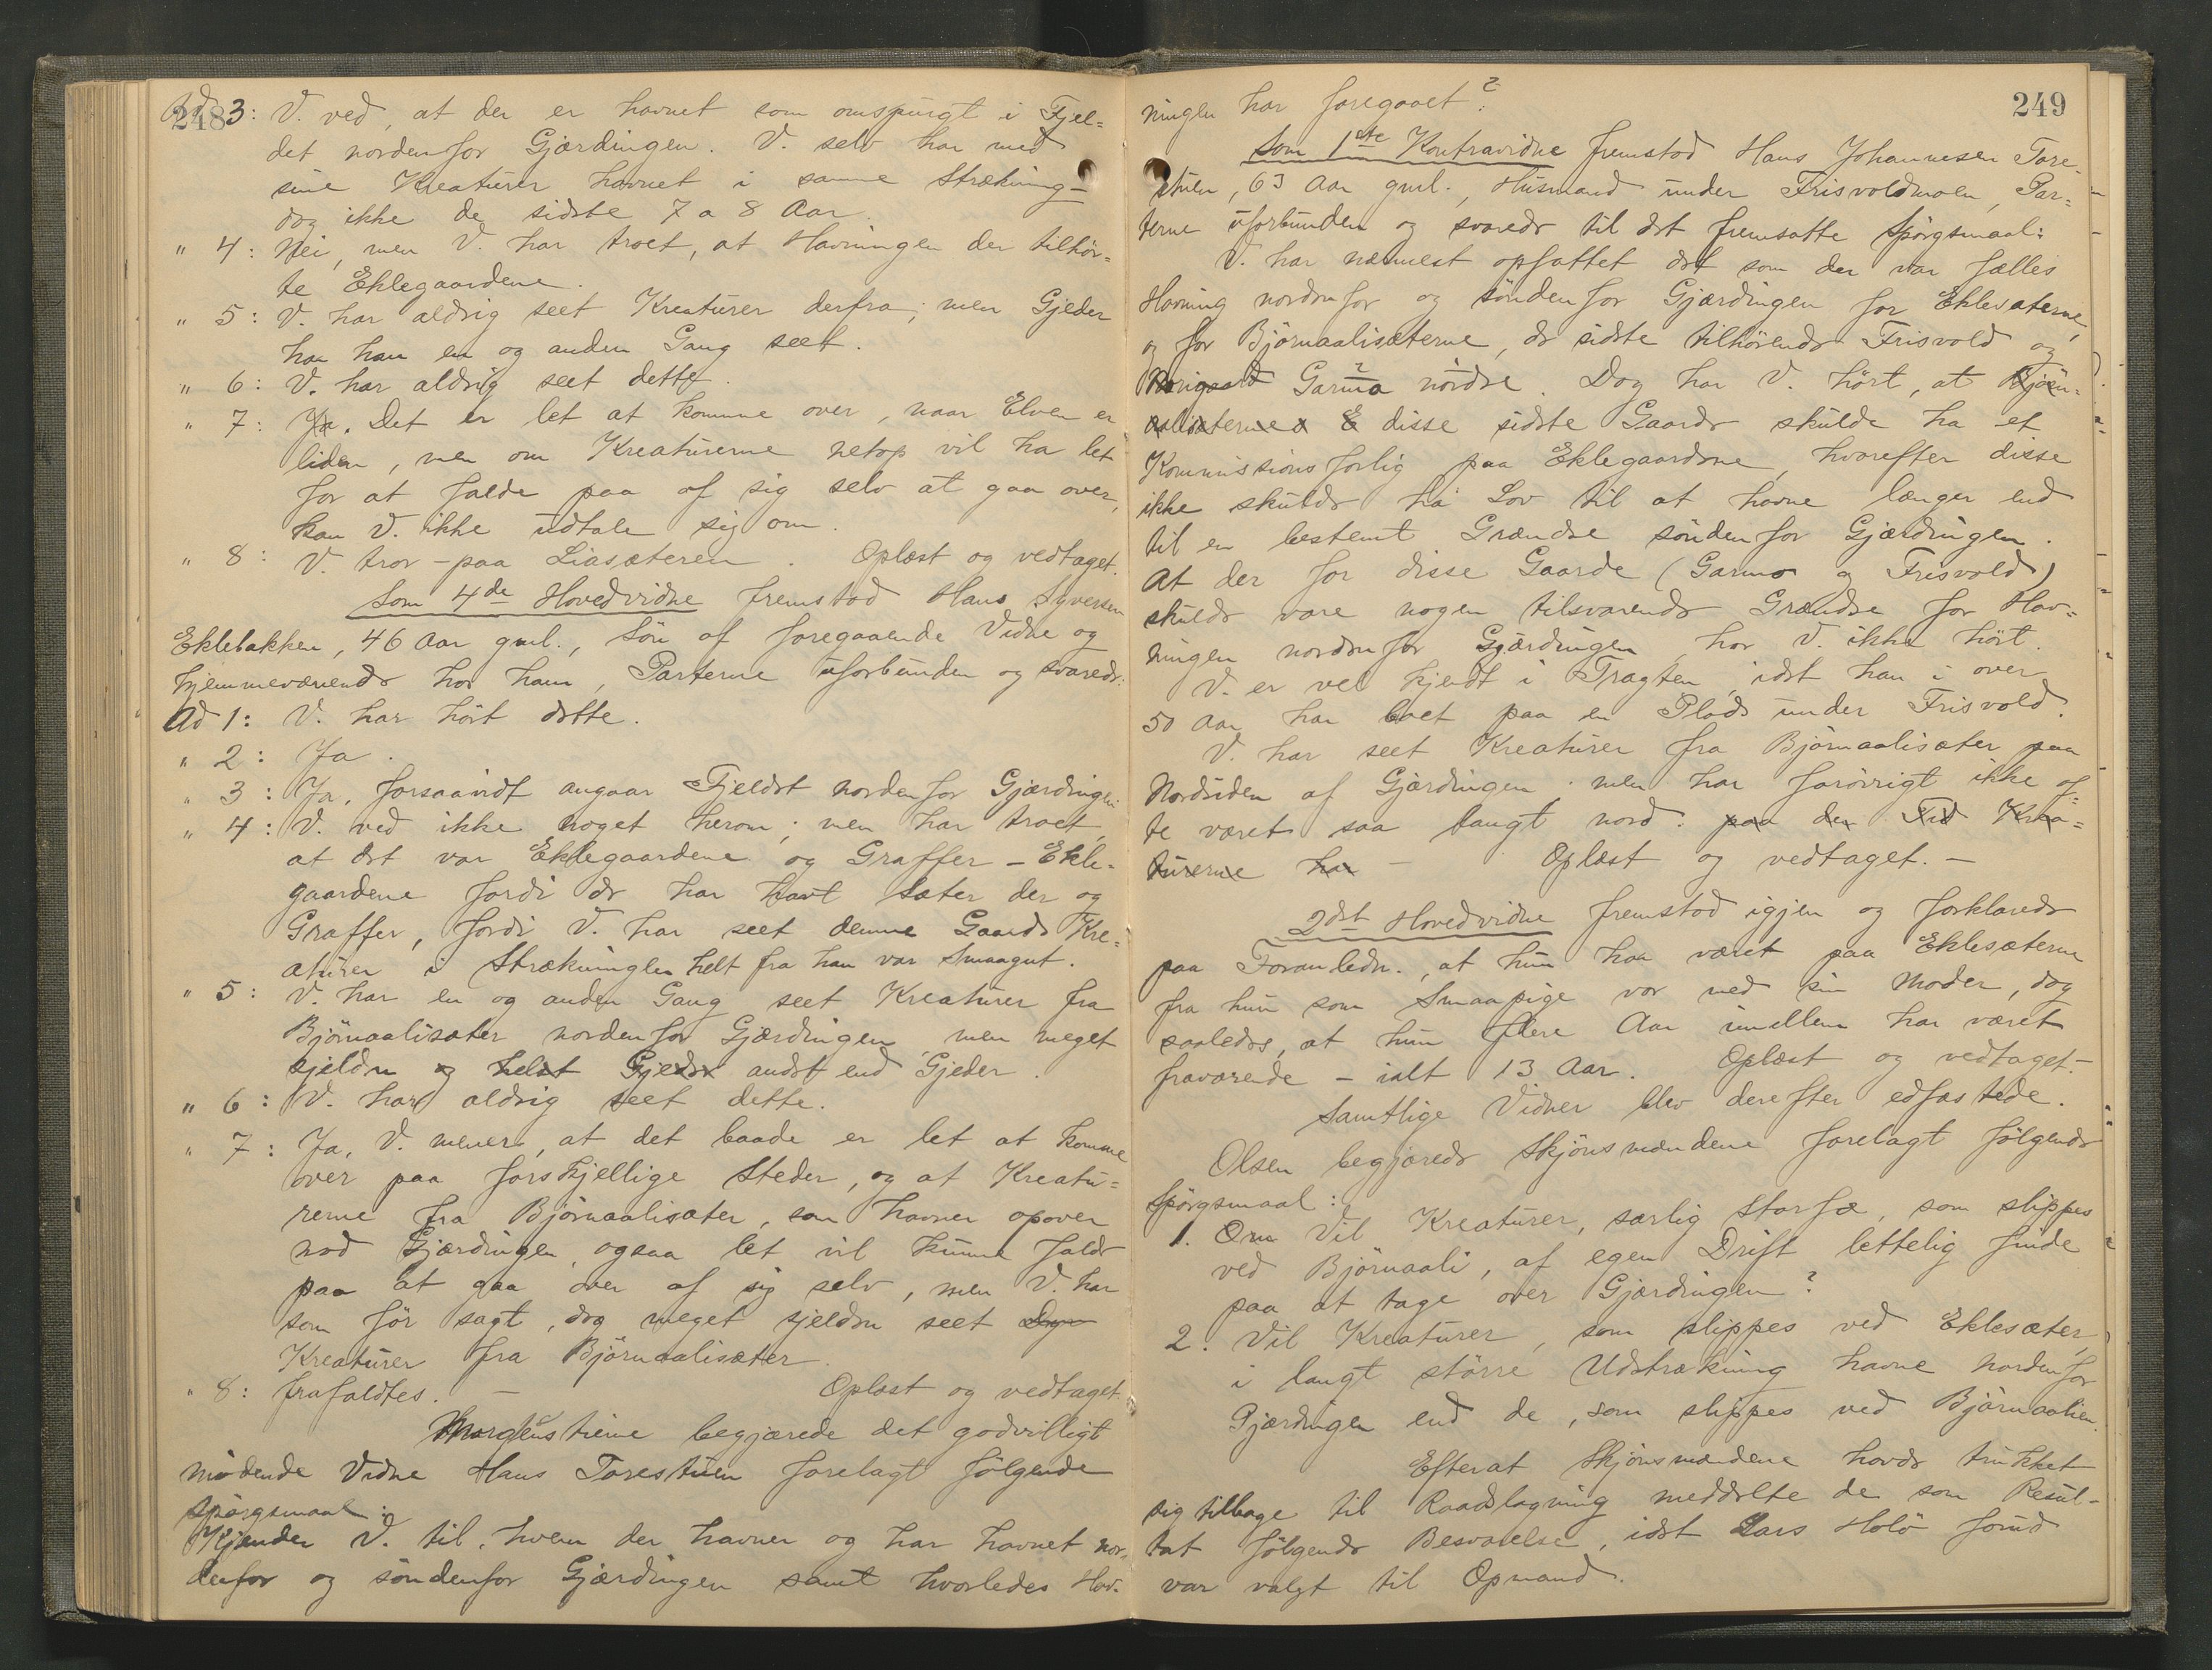 248
Ad 3: V. ved, at der er havnet som omspurgt i Fjel=
det nordenfor Gjærdingen. V. selv har med
sine Kreaturer havnet i samme Strækning –
dog ikke de sidste 7 a 8 Aar.
" 4: Nei, men V. har troet, at Havningen der tilhör=
te Eklegaardene.
" 5: V. har aldrig seet Kreaturer derfra; men Gjeder
har han en og anden Gang seet.
" 6: V. har aldrig seet dette.
" 7: Ja. Det er let at komme over, naar Elven er
liden, men om Kreaturerne netop vil ha let
for at falde paa af sig selv at gaa over,
kan V. ikke udtale sig om.
" 8: V. tror – paa Liasæteren. Oplæst og vedtaget.
Som 4de Hovedvidne fremstod Hans Syversen
Eklebakken, 46 Aar gml., Sön af foregaaende Vidne og
hjemmeværende hos ham, Parterne uforbunden og svarede:
Ad 1: V. har hört dette.
" 2: Ja.
" 3: Ja, forsaavidt angaar Fjeldet nordenfor Gjærdingen.
" 4: V. ved ikke noget herom; men har troet,
at det var Eklegaardene og Graffer – Ekle=
gaardene fordi de har havt Sæter der og
Graffer, fordi V. har seet denne Gaards Kre=
aturer i Strækningen helt fra han var Smaagut.
" 5: V. har en og anden Gang seet Kreaturer fra
Björnaalisæter nordenfor Gjærdingen, men meget
sjelden og helst Gjeder andet end Gjeder.
" 6: V. har aldrig seet dette.
" 7: Ja, V. mener, at det baade er let at komme
over paa forskjellige Steder, og at Kreatu=
rerne fra Björnaalisæter, som havner opover
mod Gjærdingen, ogsaa let vil kunne falde
paa at gaa over af sig selv, men V. har
som för sagt, dog meget sjelden seet
Kreaturer fra Björnaalisæter.
" 8: frafaldtes. – Oplæst og vedtaget.
Morgenstierne begjærede det godvilligt
mödende Vidne Hans Torestuen forelagt fölgende
Spörgsmaal:
Kjender V. til, hvem der havner og har havnet nor=
denfor og söndenfor Gjærdingen samt hvorledes Hav=
249
ningen har foregaaet?
Som 1ste Kontravidne fremstod Hans Johannesen Tore=
stuen, 63 Aar gml., Husmand under Frisvoldmoen, Par=
terne uforbunden og svarede til det fremsatte Spörgsmaal:
V. har nærmest opfattet det som der var fælles
Havning nordenfor og söndenfor Gjærdingen for Eklesæterne,
og for Björnaalisæterne, de sidste tilhörende Frisvold og
Garmo nördre. Dog har V. hört, at Björn=
aalisæternes E disse sidste Gaarde skulde ha et
Kommissionsforlig paa Eklegaardene, hvorefter disse
ikke skulde ha Lov til at havne længer end
til en bestemt Grændse söndenfor Gjærdingen.
At der for disse Gaarde (Garmo og Frisvold)
skulde være nogen tilsvarende Grændse for Hav=
ningen nordenfor Gjærdingen har V. ikke hört.
V. er vel kjendt i Tragten, idet han i over
50 Aar har boet paa en Plads under Frisvold.
V. har seet Kreaturer fra Björnaalisæter paa
Nordsiden af Gjærdingen; men har forövrigt ikke of=
te været saa langt nord. paa den Tid Krea=
turerne har – Oplæst og vedtaget. –
2det Hovedvidne fremstod igjen og forklarede
paa Foranledn., at hun har været paa Eklesæterne
fra hun som Smaapige var med sin Moder, dog
saaledes, at hun flere Aar imellem har været
fraværende – ialt 13 Aar. Oplæst og vedtaget. –
Samtlige Vidner blev derefter edfæstede.
Olsen begjærede Skjönsmændene forelagt fölgende
Spörgsmaal:
1. Om Vil Kreaturer, særlig Storfæ, som slippes
ved Björnaali, af egen Drift lettelig finde
paa at tage over Gjærdingen?
2. Vil Kreaturer, som slippes ved Eklesæter,
i langt större Udstrækning havne nordenfor
Gjærdingen end de, som slippes ved Björnaalien.
Efterat Skjönsmændene havde trukket
sig tilbage til Raadslagning meddelte de som Resul=
tat fölgende Besvarelse, idet Lars Holö forud
var valgt til Opmand.